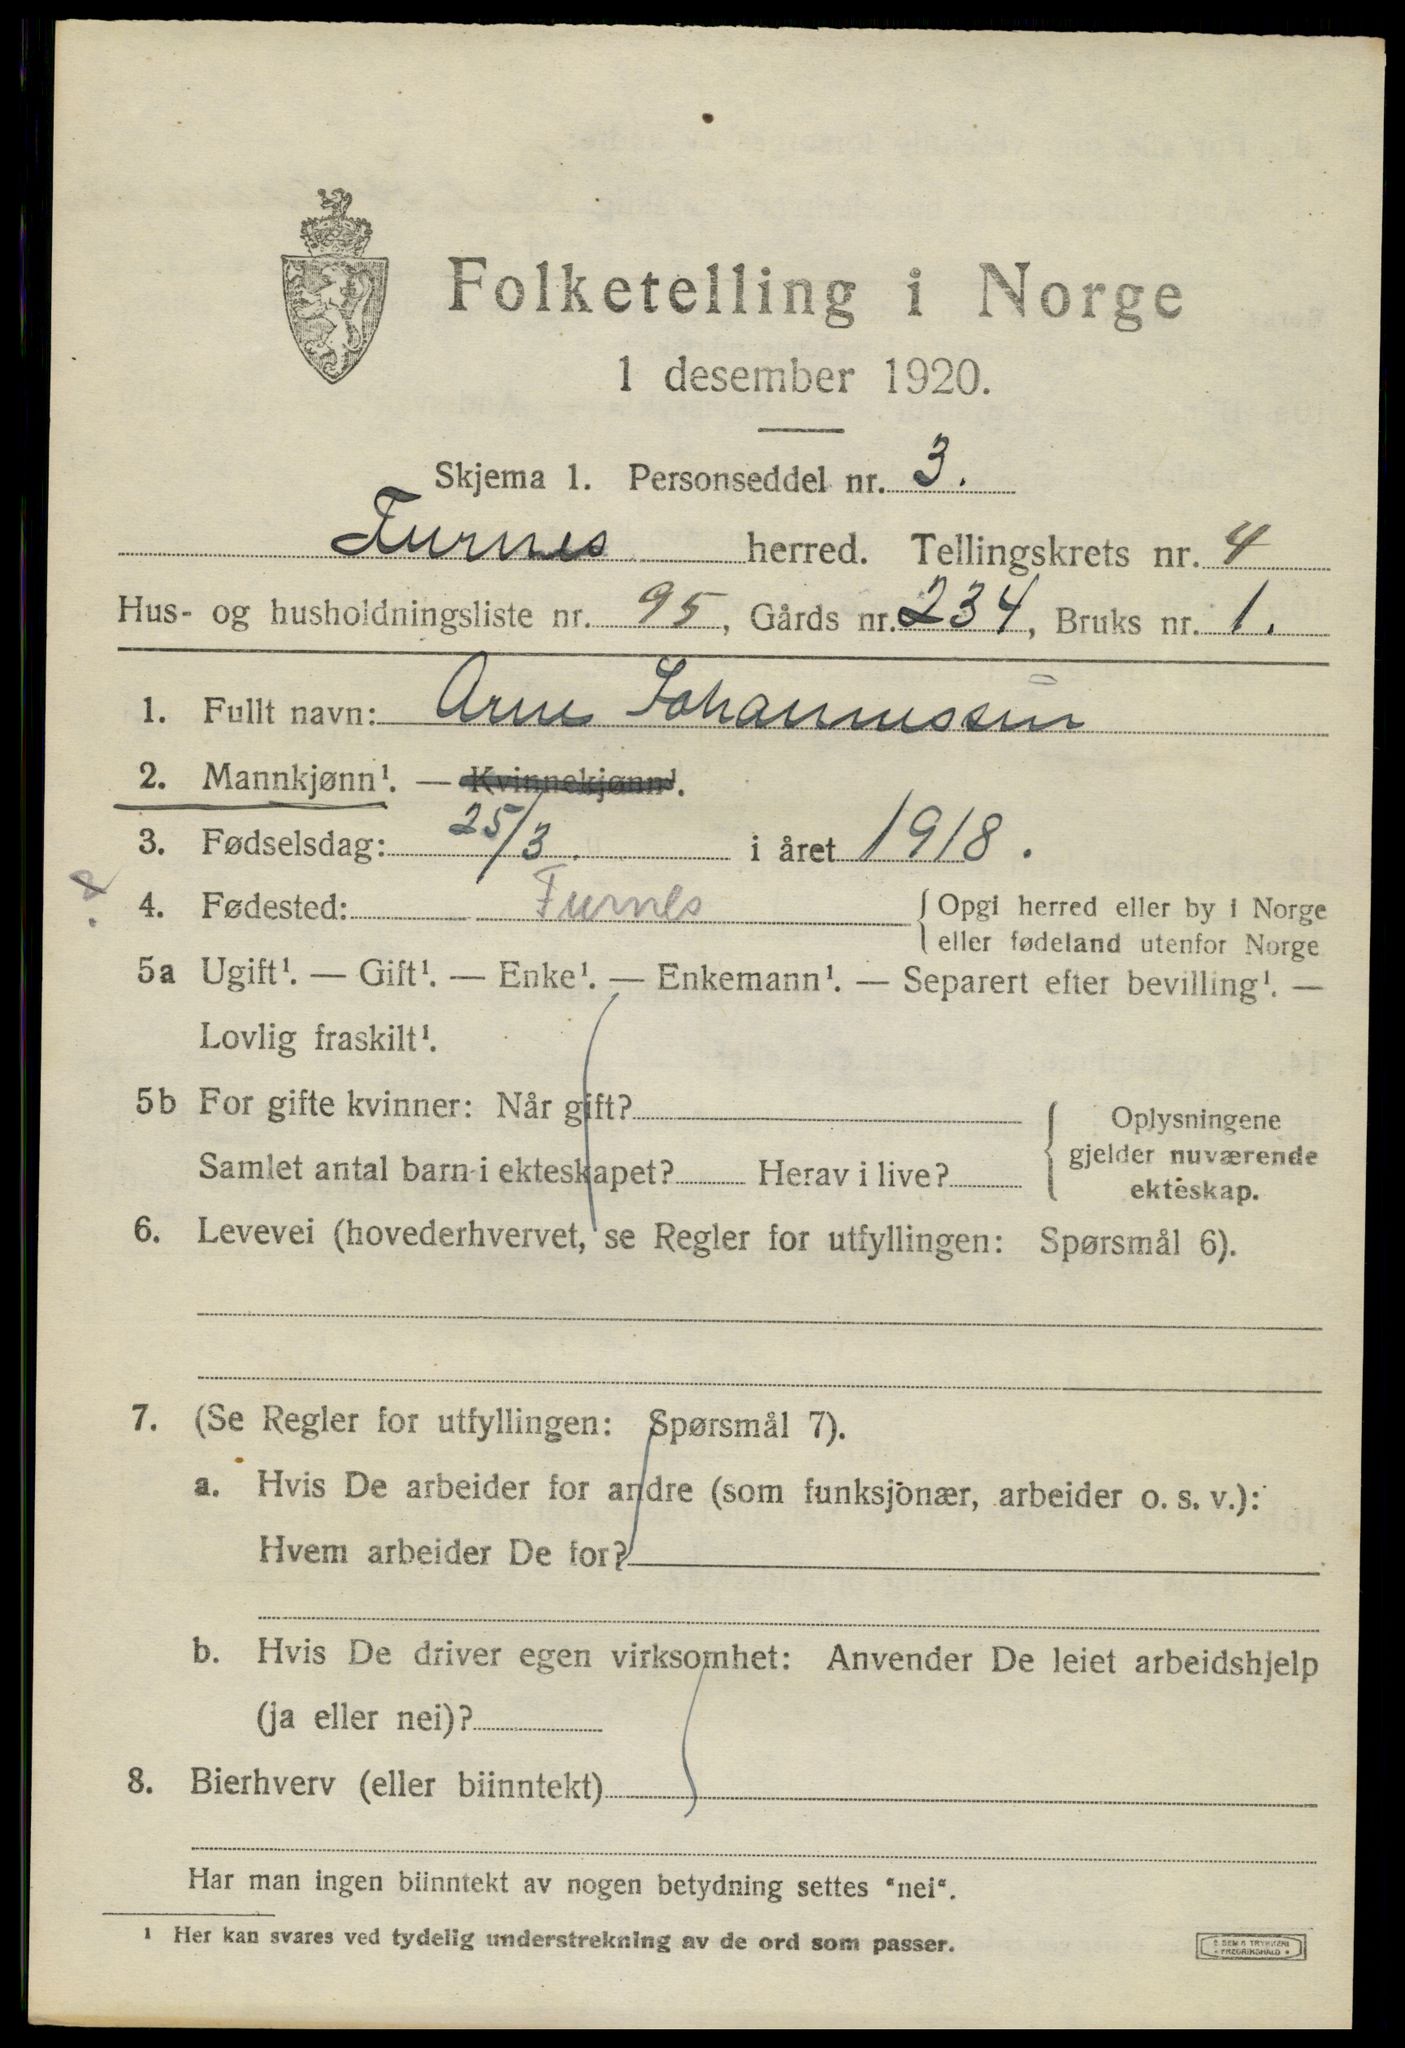 Folketelling i Norge
1 desember 1920.
Skjema 1. Personseddel nr. 3.
Furnes herred. Tellingskrets nr. 4
Hus- og husholdningsliste nr. 95, Gårds nr. 234, Bruks nr. 1.
1. Fullt navn: Arne Johannessen
2. Mannkjønn¹. — Kvinnekjønn¹.
3. Fødselsdag: 25/3. i året 1918.
4. Fødested: Furnes Opgi herred eller by i Norge
eller fødeland utenfor Norge
5a Ugift¹. — Gift¹. — Enke¹. — Enkemann¹. — Separert efter bevilling¹. —
Lovlig fraskilt¹.
5b For gifte kvinner: Når gift?
Samlet antal barn i ekteskapet? Herav i live?
Oplysningene
gjelder nuværende
ekteskap.
6. Levevei (hovederhvervet, se Regler for utfyllingen: Spørsmål 6).
7. (Se Regler for utfyllingen: Spørsmål 7).
a. Hvis De arbeider for andre (som funksjonær, arbeider o. s. v.):
Hvem arbeider De for?
b. Hvis De driver egen virksomhet: Anvender De leiet arbeidshjelp
(ja eller nei)?
8. Bierhverv (eller biinntekt)
Har man ingen biinntekt av nogen betydning settes "nei".
¹ Her kan svares ved tydelig understrekning av de ord som passer.
E. SEM'S TRYKKERI
FREDRIKSHALD